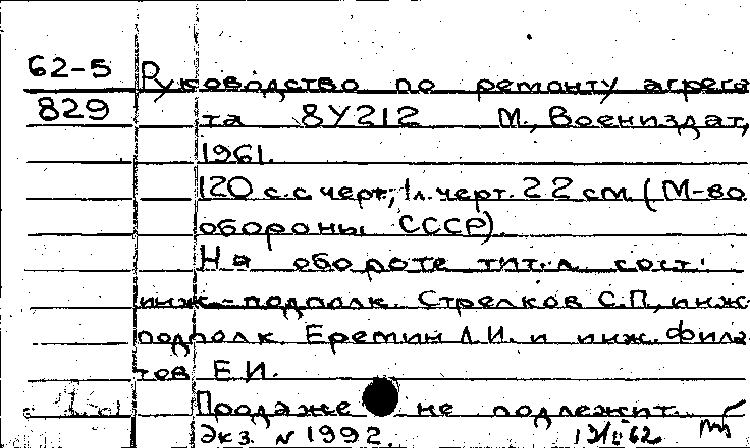 62-5 Руководство по ремонту агрега
829 та 8У212 М., Воениздат,
1961.
120 с. с черт.; 1 л. черт. 22 см. (М-во
обороны СССР).
На обороте тит. л. сост.:
инж.-подполк. Стрелков С.П., инж.
подполк. Еремин Л.И. и инж. Фила
тов Е.И.
Продаже не подлежит.
Экз. № 1992.